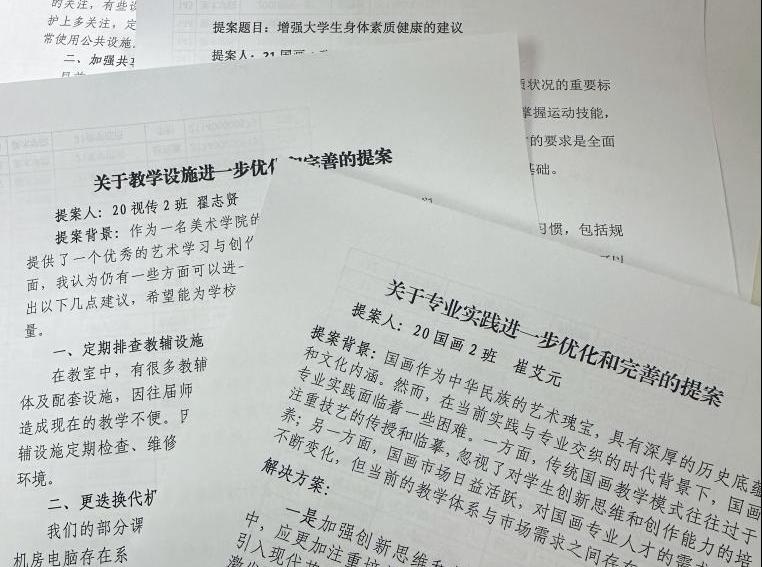 的关注，有些设
护上多关注，定
常使用公共设施
二、加强共享
提案题目：增强大学生身体素质健康的建议
提案人：21国画
质状况的重要标
掌握运动技能，
的要求是全面
基础。
习惯，包括规
关于教学设施进一步优化和完善的提案
提案人：20视传2班 翟志贤
提案背景：作为一名美术学院的
提供了一个优秀的艺术学习与创作
面，我认为仍有一些方面可以进一
出以下几点建议，希望能为学校
量。
一、定期排查教辅设施
在教室中，有很多教辅
体及配套设施，因往届师
造成现在的教学不便。
辅设施定期检查、维修
环境。
二、更迭换代机
我们的部分课
机房电脑存在系
关于专业实践进一步优化和完善的提案
提案人：20国画2班 崔艾元
提案背景：国画作为中华民族的艺术瑰宝，具有深厚的历史底蕴
和文化内涵。然而，在当前实践与专业交织的时代背景下，国画
专业实践面临着一些困难。一方面，传统国画教学模式往往过于
注重技艺的传授和临摹，忽视了对学生创新思维和创作能力的培
养；另一方面，国画市场日益活跃，对国画专业人才的需求
不断变化，但当前的教学体系与市场需求之间存在
解决方案：
一是加强创新思维和
中，应更加注重培
引入现代艺